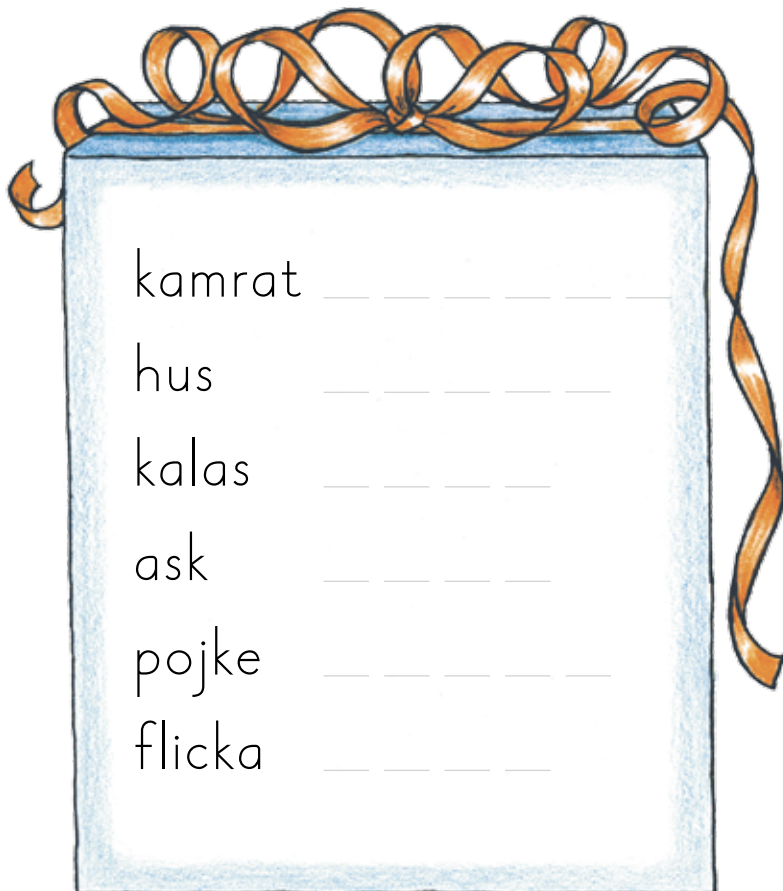 kamrat __ __ __ __ __ __
hus __ __ __ __ __
kalas __ __ __ __
ask __ __ __ __
pojke __ __ __ __ __
flicka __ __ __ __